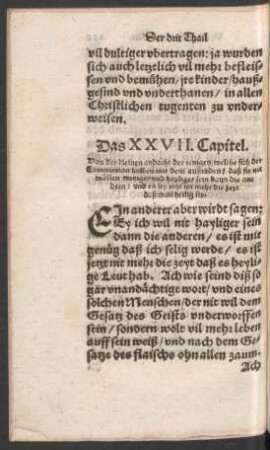 Der drit Thail
vil dultiger vbertragen: ja wurden
sich auch letzlich vil mehr befleis-
sen vnd bemühen/ jre kinder/ hauß-
gesind vnd vnderthanen/ in allen
Christlichen tugenten zu vnder-
weisen.
Das XXVII. Capitel.
Von der kleinen andacht der jenigen, welche sich der
Communion
wöllen vnd heyliger sein dann die an-
dern : vnd es sey jetzt nit mehr die zeyt
daß man heilig sey.
EIn anderer aber wirdt sagen:
Ey ich wil nit hayliger sein
dann die anderen/ es ist mir
genüg daß ich selig werde/ es ist
jetzt nit mehr die zeyt daß es heyli-
ge Leut hab. Ach wie seind diß so
gar vnandächtige wort/ vnd eines
solchen Menschen/ der nit wil dem
Gesatz des Geists vnderworffen
sein/ sondern wolt vil mehr leben
auff sein weiß/ vnd nach dem Ge-
satze des flaischs ohn allen zaum.
Ach